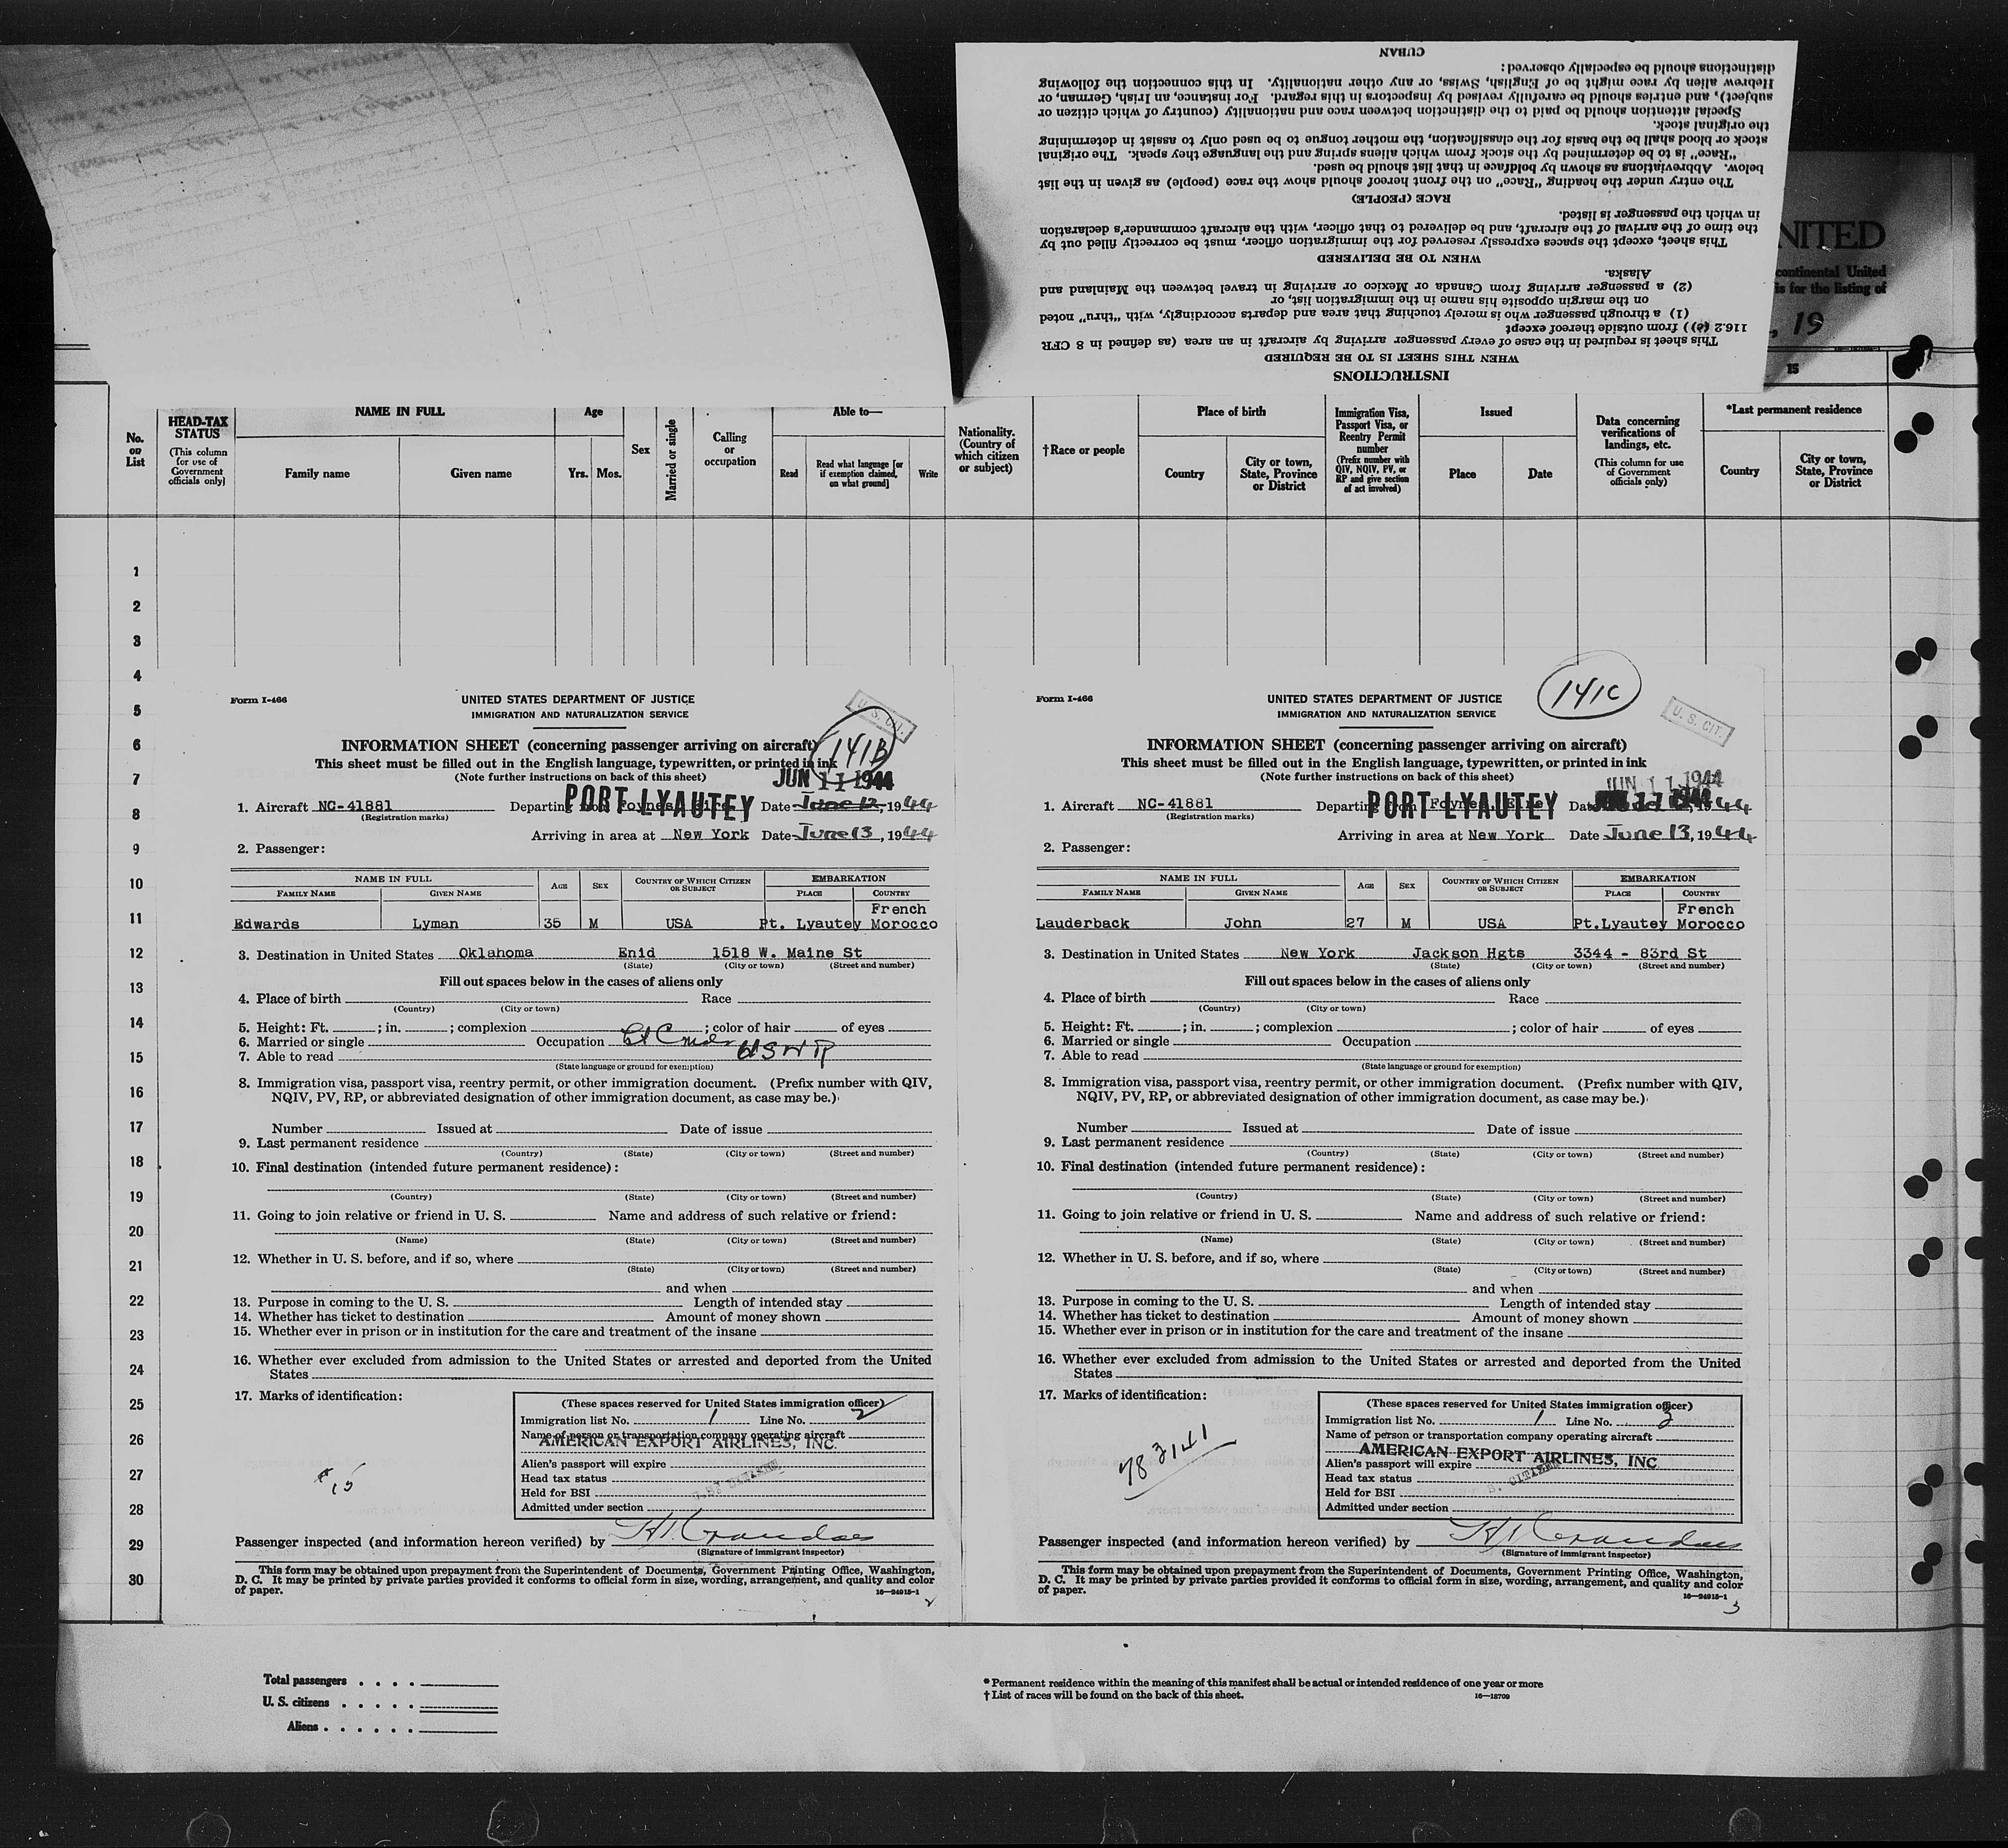 CUBAN
distinctions should be especially observed:
Hebrew alien by race might be of English, Swiss, or any other nationality. In this connection the following
subject), and entries should be carefully revised by inspectors in this regard. For instance, an Irish, German, or
Special attention should be paid to the distinction between race and nationality (country of which citizen or
the original stock.
stock or blood shall be the basis for the classification, the mother tongue to be used only to assist in determining
"Race" is to be determined by the stock from which aliens spring and the language they speak. The original
below. Abbreviations as shown by boldface in that list should be used.
The entry under the heading "Race" on the front hereof should show the race (people) as given in the list
RACE (PEOPLE)
in which the passenger is listed.
the time of the arrival of the aircraft, and be delivered to that officer, with the aircraft commander's declaration
This sheet, except the spaces expressly reserved for the immigration officer, must be correctly filled out by
WHEN TO BE DELIVERED
Alaska.
(2) a passenger arriving from Canada or Mexico or arriving in travel between the Mainland and
on the margin opposite his name in the immigration list, or
(1) a through passenger who is merely touching that area and departs accordingly, with "thru" noted
116.2 (e)) from outside thereof except
This sheet is required in the case of every passenger arriving by aircraft in an area (as defined in 8 CFR
WHEN THIS SHEET IS TO BE REQUIRED
INSTRUCTIONS
NITED
continental United
is for the listing of
, 19
15
No. on List
HEAD-TAX STATUS
(This column for use of Government officials only)
NAME IN FULL
Family name
Given name
Age
Yrs.
Mos.
Sex
Married or single
Calling or occupation
Able to—
Read
Read what language [or if exemption claimed, on what ground]
Write
Nationality. (Country of which citizen or subject)
†Race or people
Place of birth
Country
City or town, State, Province or District
Immigration Visa, Passport Visa, or Reentry Permit number
(Prefix number with QIV, NQIV, PV, or RP and give section of act involved)
Issued
Place
Date
Data concerning verifications of landings, etc.
(This column for use of Government officials only)
*Last permanent residence
Country
City or town, State, Province or District
1
2
3
4
5
6
7
8
9
10
11
12
13
14
15
16
17
18
19
20
21
22
23
24
25
26
27
28
29
30
Form I-466
UNITED STATES DEPARTMENT OF JUSTICE
IMMIGRATION AND NATURALIZATION SERVICE
U. S. CIT.
141B
INFORMATION SHEET (concerning passenger arriving on aircraft)
This sheet must be filled out in the English language, typewritten, or printed in ink
(Note further instructions on back of this sheet)
JUN 11 1944
PORT LYAUTEY
1. Aircraft NC-41881 Departing from Foynes, Eire Date June 12, 1944
(Registration marks)
Arriving in area at New York Date June 13, 1944
2. Passenger:
NAME IN FULL
FAMILY NAME GIVEN NAME AGE SEX COUNTRY OF WHICH CITIZEN OR SUBJECT EMBARKATION PLACE COUNTRY
French
Edwards Lyman 35 M USA Pt. Lyautey Morocco
3. Destination in United States Oklahoma Enid 1518 W. Maine St
(State) (City or town) (Street and number)
Fill out spaces below in the cases of aliens only
4. Place of birth Race
(Country) (City or town)
5. Height: Ft. ; in. ; complexion ; color of hair of eyes
6. Married or single Occupation Lt Cmdr USNR
7. Able to read
(State language or ground for exemption)
8. Immigration visa, passport visa, reentry permit, or other immigration document. (Prefix number with QIV,
NQIV, PV, RP, or abbreviated designation of other immigration document, as case may be.)
Number Issued at Date of issue
9. Last permanent residence
(Country) (State) (City or town) (Street and number)
10. Final destination (intended future permanent residence):
(Country) (State) (City or town) (Street and number)
11. Going to join relative or friend in U. S. Name and address of such relative or friend:
(Name) (State) (City or town) (Street and number)
12. Whether in U. S. before, and if so, where
(State) (City or town) (Street and number)
and when
13. Purpose in coming to the U. S. Length of intended stay
14. Whether has ticket to destination Amount of money shown
15. Whether ever in prison or in institution for the care and treatment of the insane
16. Whether ever excluded from admission to the United States or arrested and deported from the United
States
17. Marks of identification:
(These spaces reserved for United States immigration officer)
Immigration list No. 1 Line No. 2
Name of person or transportation company operating aircraft
AMERICAN EXPORT AIRLINES, INC.
Alien's passport will expire
Head tax status
Held for BSI
Admitted under section
Passenger inspected (and information hereon verified) by
(Signature of immigrant inspector)
This form may be obtained upon prepayment from the Superintendent of Documents, Government Printing Office, Washington,
D. C. It may be printed by private parties provided it conforms to official form in size, wording, arrangement, and quality and color
of paper.
16—24915-1
2
Form I-466
UNITED STATES DEPARTMENT OF JUSTICE
IMMIGRATION AND NATURALIZATION SERVICE
141C
U. S. CIT.
INFORMATION SHEET (concerning passenger arriving on aircraft)
This sheet must be filled out in the English language, typewritten, or printed in ink
(Note further instructions on back of this sheet)
JUN 11 1944
PORT LYAUTEY
1. Aircraft NC-41881 Departing from Foynes, Eire Date 1944
(Registration marks)
Arriving in area at New York Date June 13, 1944
2. Passenger:
NAME IN FULL
FAMILY NAME GIVEN NAME AGE SEX COUNTRY OF WHICH CITIZEN OR SUBJECT EMBARKATION PLACE COUNTRY
French
Lauderback John 27 M USA Pt.Lyautey Morocco
3. Destination in United States New York Jackson Hgts 3344 - 83rd St
(State) (City or town) (Street and number)
Fill out spaces below in the cases of aliens only
4. Place of birth Race
(Country) (City or town)
5. Height: Ft. ; in. ; complexion ; color of hair of eyes
6. Married or single Occupation
7. Able to read
(State language or ground for exemption)
8. Immigration visa, passport visa, reentry permit, or other immigration document. (Prefix number with QIV,
NQIV, PV, RP, or abbreviated designation of other immigration document, as case may be.)
Number Issued at Date of issue
9. Last permanent residence
(Country) (State) (City or town) (Street and number)
10. Final destination (intended future permanent residence):
(Country) (State) (City or town) (Street and number)
11. Going to join relative or friend in U. S. Name and address of such relative or friend:
(Name) (State) (City or town) (Street and number)
12. Whether in U. S. before, and if so, where
(State) (City or town) (Street and number)
and when
13. Purpose in coming to the U. S. Length of intended stay
14. Whether has ticket to destination Amount of money shown
15. Whether ever in prison or in institution for the care and treatment of the insane
16. Whether ever excluded from admission to the United States or arrested and deported from the United
States
17. Marks of identification:
783141
(These spaces reserved for United States immigration officer)
Immigration list No. 1 Line No. 3
Name of person or transportation company operating aircraft
AMERICAN EXPORT AIRLINES, INC
Alien's passport will expire
Head tax status
Held for BSI
Admitted under section
Passenger inspected (and information hereon verified) by
(Signature of immigrant inspector)
This form may be obtained upon prepayment from the Superintendent of Documents, Government Printing Office, Washington,
D. C. It may be printed by private parties provided it conforms to official form in size, wording, arrangement, and quality and color
of paper.
16—24915-1
3
Total passengers . . . .
U. S. citizens . . . . .
Aliens . . . . . .
* Permanent residence within the meaning of this manifest shall be actual or intended residence of one year or more
† List of races will be found on the back of this sheet.
16—18709